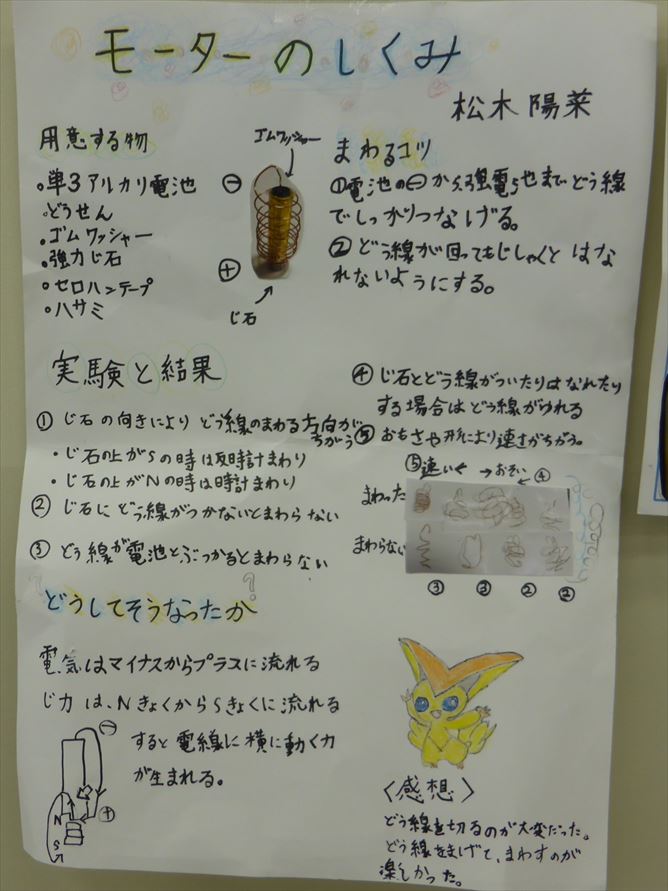 モーターのしくみ
松木陽菜
用意する物
。単3アルカリ電池
。どうせん
。ゴムワッシャー
。強力じ石
。セロハンテープ
。ハサミ
ゴムワッシャー
⊖
⊕
じ石
まわるコツ
①電池の⊖から強電ち池までどう線
でしっかりつなげる。
②どう線が回ってもじしゃくとはな
れないようにする。
実験と結果
①じ石の向きによりどう線のまわる方向が
ちがう
・じ石の上がSの時は反時計まわり
・じ石の上がNの時は時計まわり
②じ石にどう線がつかないとまわらない
③どう線が電池とぶつかるとまわらない
④じ石とどう線がついたりはなれたり
する場合はどう線がゆれる
⑤おもさや形により速さがちがう。
⑤速い← →おそい ④
まわった
まわらない
③ ③ ② ②
? どうしてそうなったか ?
電気はマイナスからプラスに流れる
じ力は、NきょくからSきょくに流れる
すると電線に横に動く力
が生まれる。
⊖
⊕
N
S
〈感想〉
どう線を切るのが大変だった。
どう線をまげて、まわすのが
楽しかった。